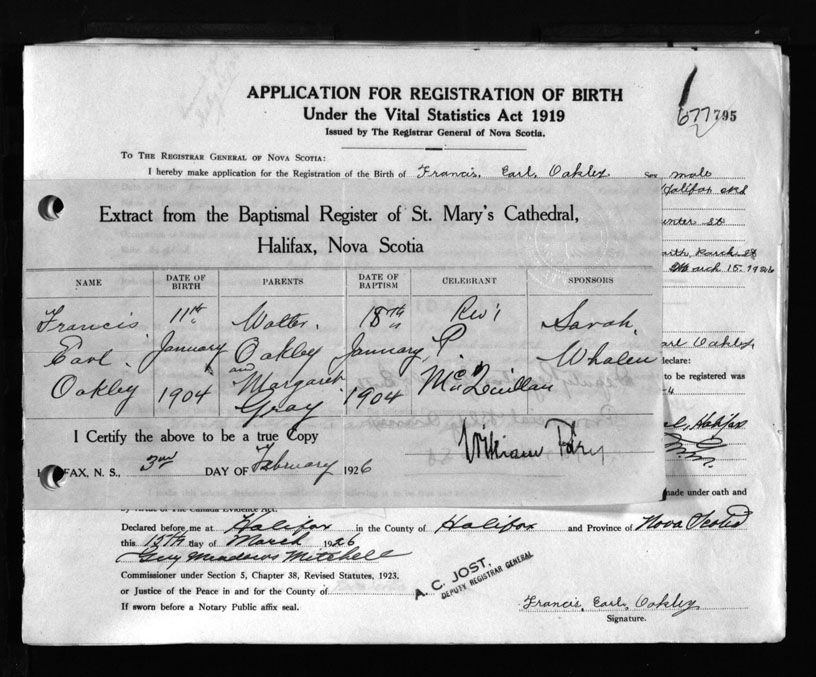 APPLICATION FOR REGISTRATION OF BIRTH
Under the Vital Statistics Act 1919
Issued by The Registrar General of Nova Scotia.
677795
TO THE REGISTRAR GENERAL OF NOVA SCOTIA:
I hereby make application for the Registration of the Birth of Francis, Earl, Oakley Sex male
Halifax
Extract from the Baptismal Register of St. Mary's Cathedral,
Halifax, Nova Scotia
March 15. 1926
NAME DATE OF BIRTH PARENTS DATE OF BAPTISM CELEBRANT SPONSORS
Francis. 11th Walter. 18th Rev'd Sarah,
Earl. January Oakley January, P Whalen
Oakley 1904 and Margaret Gray 1904 McQuillan
Earl Oakley
declare:
to be registered was
Halifax
I Certify the above to be a true Copy
FAX, N. S., 3rd DAY OF February 1926
William
made under oath and
by virtue of The Canada Evidence Act.
Declared before me at Halifax in the County of Halifax and Province of Nova Scotia
this 15th day of March 1926
Guy Meadows Mitchell
Commissioner under Section 5, Chapter 38, Revised Statutes, 1923.
or Justice of the Peace in and for the County of
If sworn before a Notary Public affix seal.
A. C. JOST.
DEPUTY REGISTRAR GENERAL
Francis, Earl, Oakley
Signature.